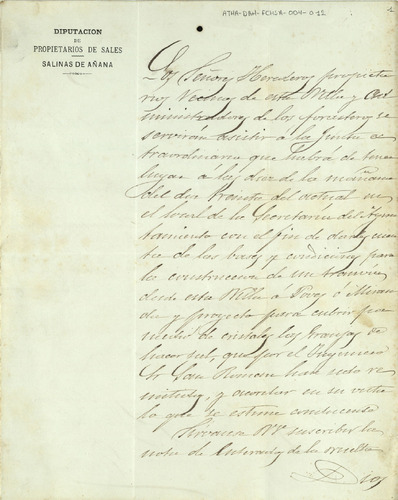 ATHA-DAH-FCHSA-004-012
1
DIPUTACION
DE
PROPIETARIOS DE SALES
SALINAS DE AÑANA
Los Señores Herederos propieta
rios Vecinos de esta Villa y Ad
ministradores de los forasteros se
servirán asistir á la Junta es
traordinaria que habrá de tener
lugar á las diez de la mañana
del dia treinta del actual en
el local de la Secretaría del Ayun
tamiento con el fin de dar cuen
ta de las bases y condiciones para
la construccion de un tranvia
desde esta Villa á Pobes ó Miran
da y proyecto para cubrir por
medio de cristales las granjas de
hacer sal, que por el Ingeniero
Sr San Roman han sido re
mitidos, y acordar en su vista
lo que se estime conducente
Sirvanse VV suscribir la
nota de Enterados y de la vuelta
Dios